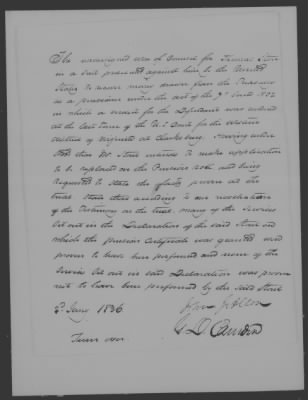 The undersigned were of Council for Thomas Stout
in a suit prosecuted against him by the United
States to recover money drawn from the Treasury
as a pensioner under the act of the 7th June 1832
in which a verdict for the Defendant was rendered
at the last term of the U.S. Court for the Western
district of Virginia at Clarksburg. Having under
stood that Mr Stout intends to make application
to be replaced on the Pension role and being
requested to state the facts proven at the
trial state that according to our recollection
of the testimony on the trial, many of the services
set out in the Declaration of the said Stout on
which the pension Certificate was granted were
proven to have been performed and none of the
services set out in said Declaration was proven
not to have been performed by the said Stout
2 Jany 1836
John J Allen
G D Camden
Turn over